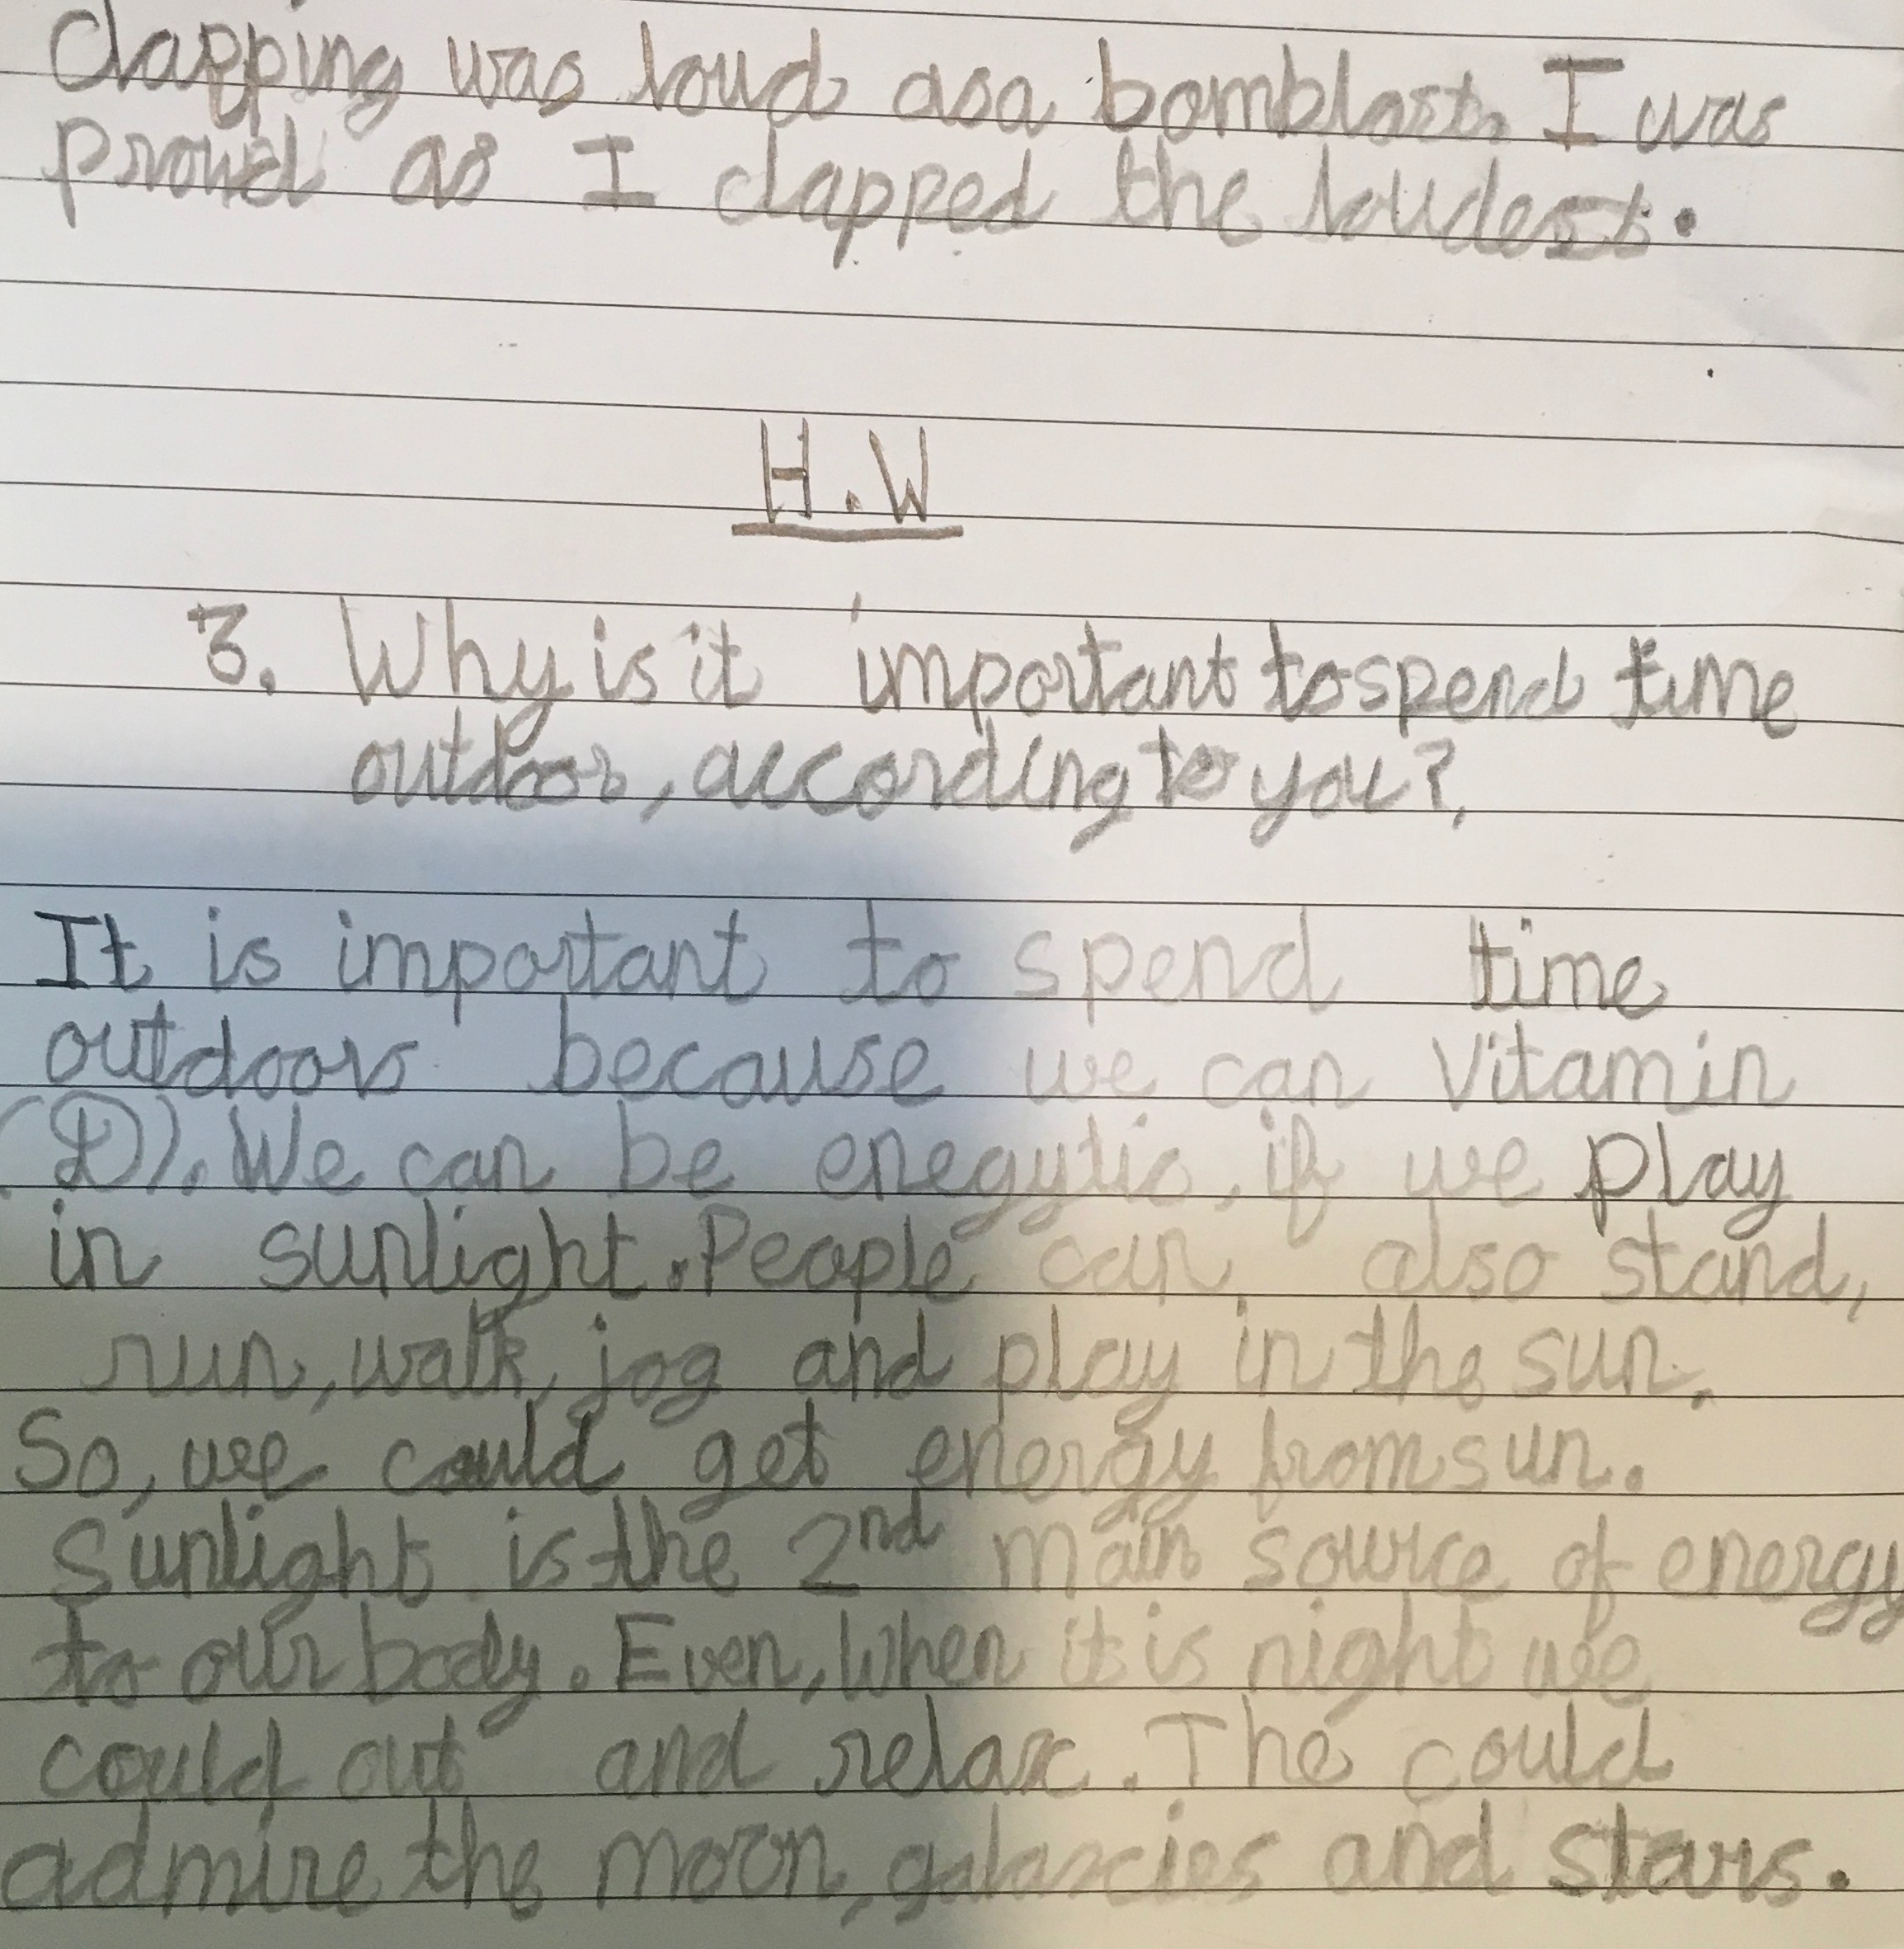 clapping was loud asa bomblast. I was
proud as I clapped the loudest.
H.W
3. Why is it important to spend time
outdoor, according to you?
It is important to spend time
outdoors because we can Vitamin
(D). We can be enegytic, if we play
in sunlight. People can also stand,
run, walk, jog and play in the sun.
So, we could get energy from sun.
Sunlight is the 2nd main source of energy
to our body. Even, When it is night we
could out and relax. The could
admire the moon, galaxies and stars.